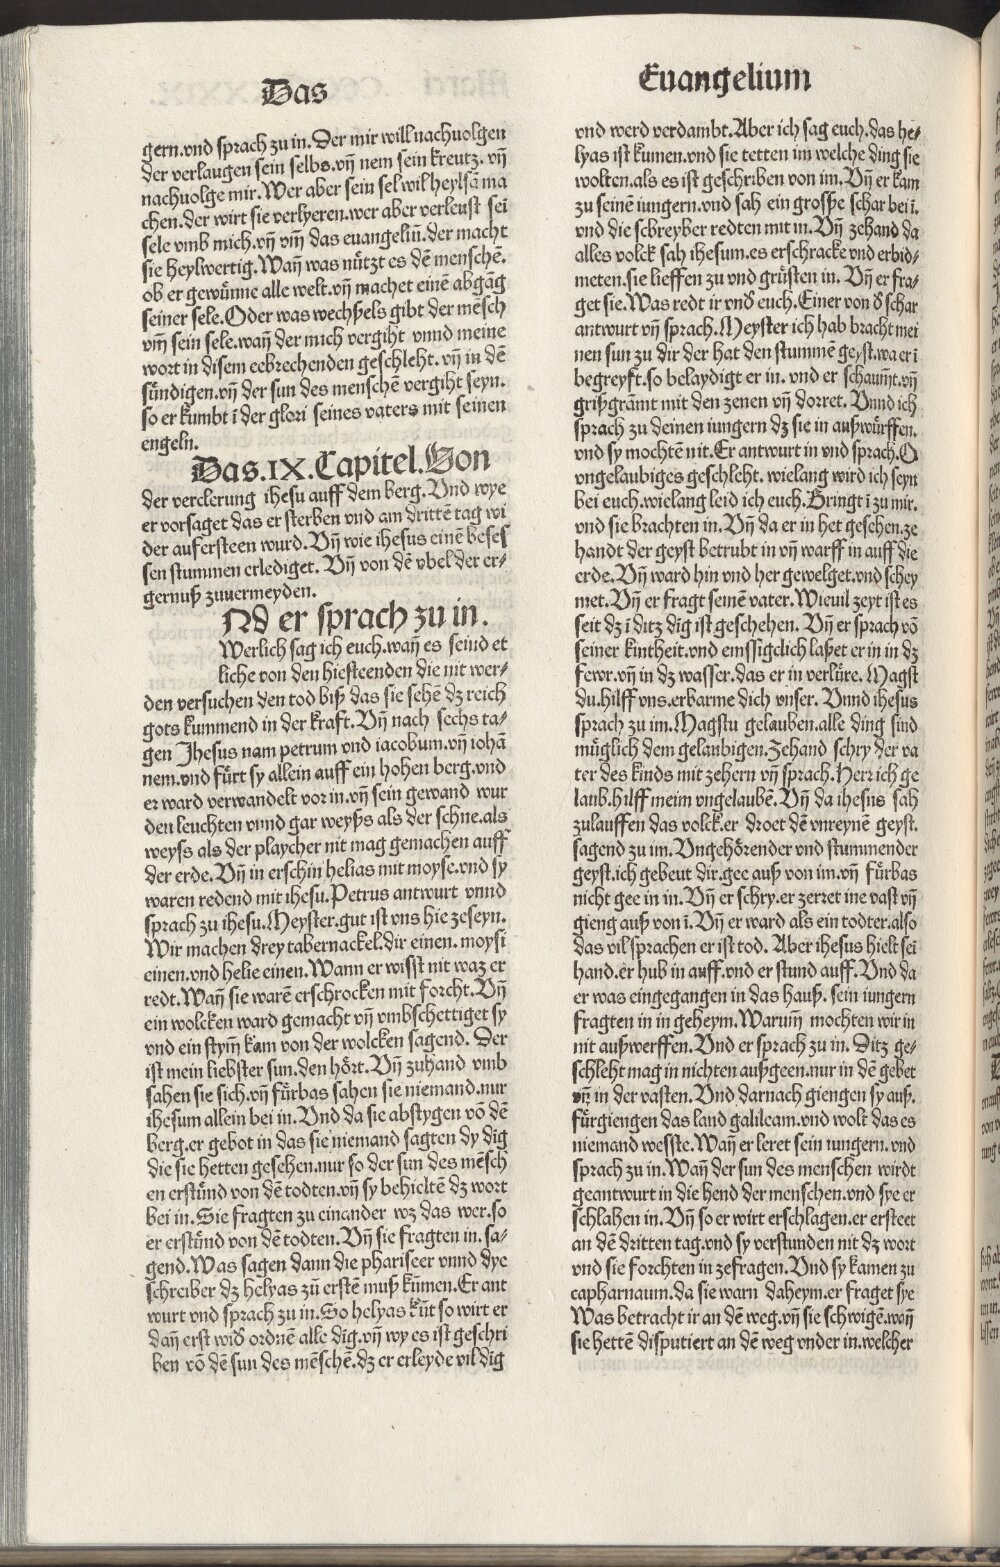 Das
Euangelium
gern.vnd sprach zu in.Der mir will nachuolgen
der verlaugen sein selbs.vn̄ nem sein kreutz. vn̄
nachuolge mir.Wer aber sein sel wil heylsā ma
chen.der wirt sie verlyeren.wer aber verleust sei
sele vmb mich.vn̄ vm̄ das euangeliū.der macht
sie heylwertig.Wan̄ was nützt es dē menschē.
ob er gewünne alle welt.vn̄ machet einē abgāg
seiner sele.Oder was wechßels gibt der mēsch
vm̄ sein sele.wan̄ der mich vergiht vnnd meine
wort in disem eebrechenden geschleht. vn̄ in dē
sündigen.vn̄ der sun des menschē vergiht seyn.
so er kumbt ī der glori seines vaters mit seinen
engeln.
Das.IX.Capitel.Von
der verclerung ihesu auff dem berg.Vnd wye
er vorsaget das er sterben vnd am drittē tag wi
der auferseen wurd.Vn̄ wie ihesus einē beses
sen stummen erlediget. Vn̄ von dē vbel der er-
gernuß zuuermeyden.
Nd er sprach zu in.
Werlich sag ich euch.wan̄ es seind et
liche von den hiesteenden die nit wer-
den versuchen den tod biß das sie sehē dz reich
gots kummend in der kraft.Vn̄ nach sechs ta-
gen Jhesus nam petrum vnd iacobum.vn̄ iohā
nem.vnd fürt sy allein auff ein hohen berg.vnd
er ward verwandelt vor in.vn̄ sein gewand wur
den leuchten vnnd gar weyßs als der schne.als
weyss als der playcher nit mag gemachen auff
der erde.Vn̄ in erschin helias mit moyse.vnd sy
waren redend mit ihesu.Petrus antwurt vnnd
sprach zu ihesu.Meyster.gut ist vns hie zeseyn.
Wir machen drey tabernackel.dir einen. moysi
einen.vnd helie einen.Wann er wisst nit waz er
redt.Wan̄ sie warē erschrocken mit forcht.Vn̄
ein wolcken ward gemacht vn̄ vmbschettiget sy
vnd ein stym̄ kam von der wolcken sagend. Der
ist mein liebster sun.den hört.Vn̄ zuhand vmb
sahen sie sich.vn̄ fürbas sahen sie niemand.nur
ihesum allein bei in.Vnd da sie abstygen vō dē
berg.er gebot in das sie niemand sagten dy dig
die sie hetten gesehen.nur so der sun des mēsch
en erstünd von dē todten.vn̄ sy behieltē dz wort
bei in.Sie fragten zu einander wz das wer.so
er erstünd von dē todten.Vn̄ sie fragten in. sa-
gend.Was sagen dann die phariseer vnnd dye
schreiber dz helyas zů erstē muß kūmen.Er ant
wurt vnd sprach zu in.So helyas küt so wirt er
dan̄ erst wid ordnē alle dīg.vn̄ wy es ist geschri
ben vō dē sun des mēschē.dz er erleyde vil dīg
vnd werd verdambt.Aber ich sag euch.das he-
lyas ist kumen.vnd sie tetten im welche ding sie
wolten.als es ist geschriben von im. Vn̄ er kam
zu seinē iungern.vnd sah ein grosse schar bei ī.
vnd die schreyber redten mit in.Vn̄ zehand da
alles volck sah ihesum.es erschracke vnd erbid-
meten.sie lieffen zu vnd grüsten in. Vn̄ er fra-
get sie.Was redt ir vnd euch.Einer von d schar
antwurt vn̄ sprach.Meyster ich hab bracht mei
nen sun zu dir der hat den stummē geyst.wa er ī
begreyft.so belaydigt er in. vnd er schaum̄t.vn̄
grißgramt mit den zenen vn̄ dorret. Vnnd ich
sprach zu deinen iungern dz sie in außwürffen.
vnd sy mochtē nit.Er antwurt in vnd sprach.O
vngelaubiges geschleht. wielang wird ich seyn
bei euch.wielang leid ich euch.Bringt ī zu mir.
vnd sie brachten in.Vn̄ da er in het gesehen.ze
handt der geyst betrubt in vn̄ warff in auff die
erde.Vn̄ ward hin vnd her gewelget.vnd schey
met.Vn̄ er fragt seinē vater.Wieuil zeyt ist es
seit dz ī ditz dīg ist geschehen. Vn̄ er sprach vō
seiner kintheit.vnd emssigclich laßet er in in dz
fewr.vn̄ in dz wasser.das er in verlüre. Magst
du.hilff vns.erbarme dich vnser. Vnnd ihesus
sprach zu im.Magstu gelauben.alle ding sind
müglich dem gelaubigen.Zehand schry der va
ter des kinds mit zehern vn̄ sprach.Herr ich ge
laub.hilff meim vngelaubē.Vn̄ da ihesus sah
zulauffen das volck.er droet dē vnreynē geyst.
sagend zu im.Vngehörender vnd stummender
geyst.ich gebeut dir.gee auß von im.vn̄ fürbas
nicht gee in in.Vn̄ er schry.er zerret ine vast vn̄
gieng auß von ī.Vn̄ er ward als ein todter.also
das vil sprachen er ist tod. Aber ihesus hielt sei
hand.er hub in auff.vnd er stund auff.Vnd da
er was eingegangen in das hauß. sein iungern
fragten in in geheym.Warum̄ mochten wir in
nit außwerffen.Vnd er sprach zu in. Ditz ge-
schleht mag in nichten außgeen.nur in dē gebet
vn̄ in der vasten.Vnd darnach giengen sy auß.
fürgiengen das land galileam.vnd wolt das es
niemand wesste.Wan̄ er leret sein iungern.vnd
sprach zu in.Wan̄ der sun des menschen wirdt
geantwurt in die hend der menschen.vnd sye er
schlahen in.Vn̄ so er wirt erschlagen.er ersteet
an dē dritten tag.vnd sy verstunden nit dz wort
vnd sie forchten in zefragen.Vnd sy kamen zu
capharnaum.da sie warn daheym.er fraget sye
Was betracht ir an dē weg.vn̄ sie schwigē.wan̄
sie hettē disputiert an dē weg vnder in.welcher